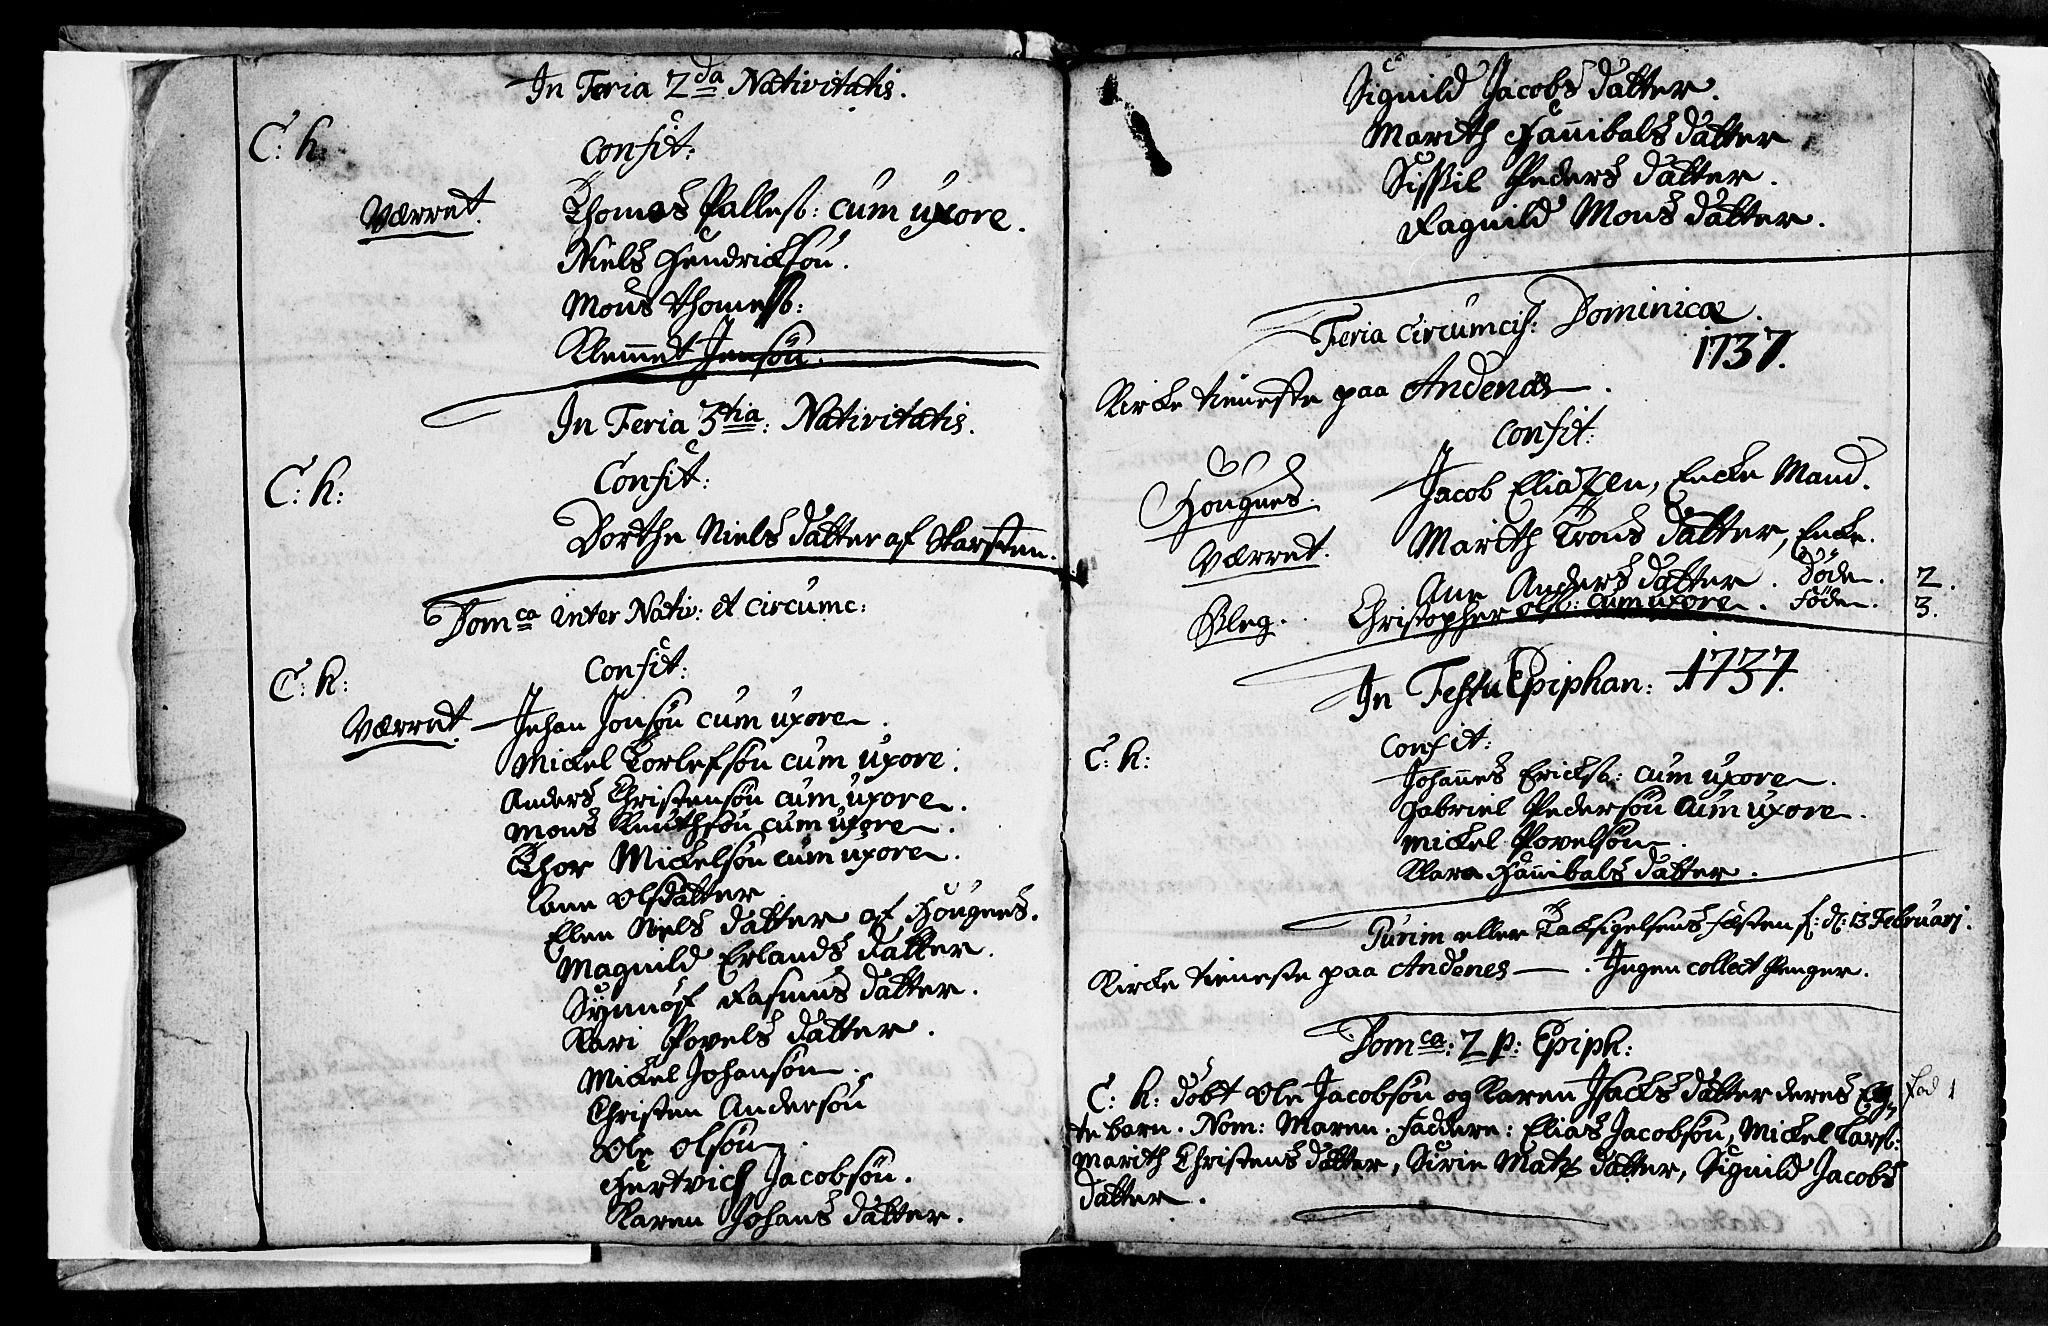 In Feria 2da Nativitatis.
C: K:
Confit:
Værret. Thomas Palles: cum uxore.
Niels Hendrichsøn.
Mons Thomess:
Klemmet Jensøn.
In Feria 3tia: Nativitatis.
C: K:
Confit:
Dorthe Niels datter af Skarsten.
Domca inter Nativ: et circumc:
C: K:
Confit:
Værret. Johan Jonsøn cum uxore.
Mickel Torlefsøn cum uxore.
Anders Christensøn cum uxore.
Mons Knuthsøn cum uxore.
Thor Mickelsøn cum uxore.
Lane Olsdatter
Ellen Niels datter af Hougnes.
Magnild Erlands datter.
Synnøf Rasmus datter.
Kari Povels datter.
Mickel Johansøn.
Christen Andersøn
Ole Olsøn.
Hertvich Jacobsøn.
Karen Johans datter.
Signild Jacobs datter.
Marith Hannibals datter
Sissel Peders datter.
Ragnild Mons datter.
Feria Circumcis: Dominicæ.
1737.
Kircke tieneste paa Andenæs.
Confit:
Hougnes. Jacob Eliazen, Encke Mand.
Værret. Marith Trons datter, Encke.
Ane Anders datter. Døde. 2.
Bleg. Christopher Ols: cum uxore. Føde. 3.
In Festu Epiphan: 1737.
C: K:
Confit:
Johannes Ericks: cum uxore.
Gabriel Pedersøn cum uxore.
Mickel Povelsøn.
Kara Hannibals datter.
Purim eller Taksigelsens festen f: d: 13 Februarj.
Kircke tieneste paa Andenes. Ingen collect Penger.
Domca: 2 p: Epiph:
C: K: døbt Ole Jacobsøn og Karen Isacks datter deres Eg- Fød 1
te barn. Nom: Maren. Faddere: Elias Jacobsøn, Mickel Lars:
Marith Christens datter, Sirie Matz datter, Signild Jacobs
datter.